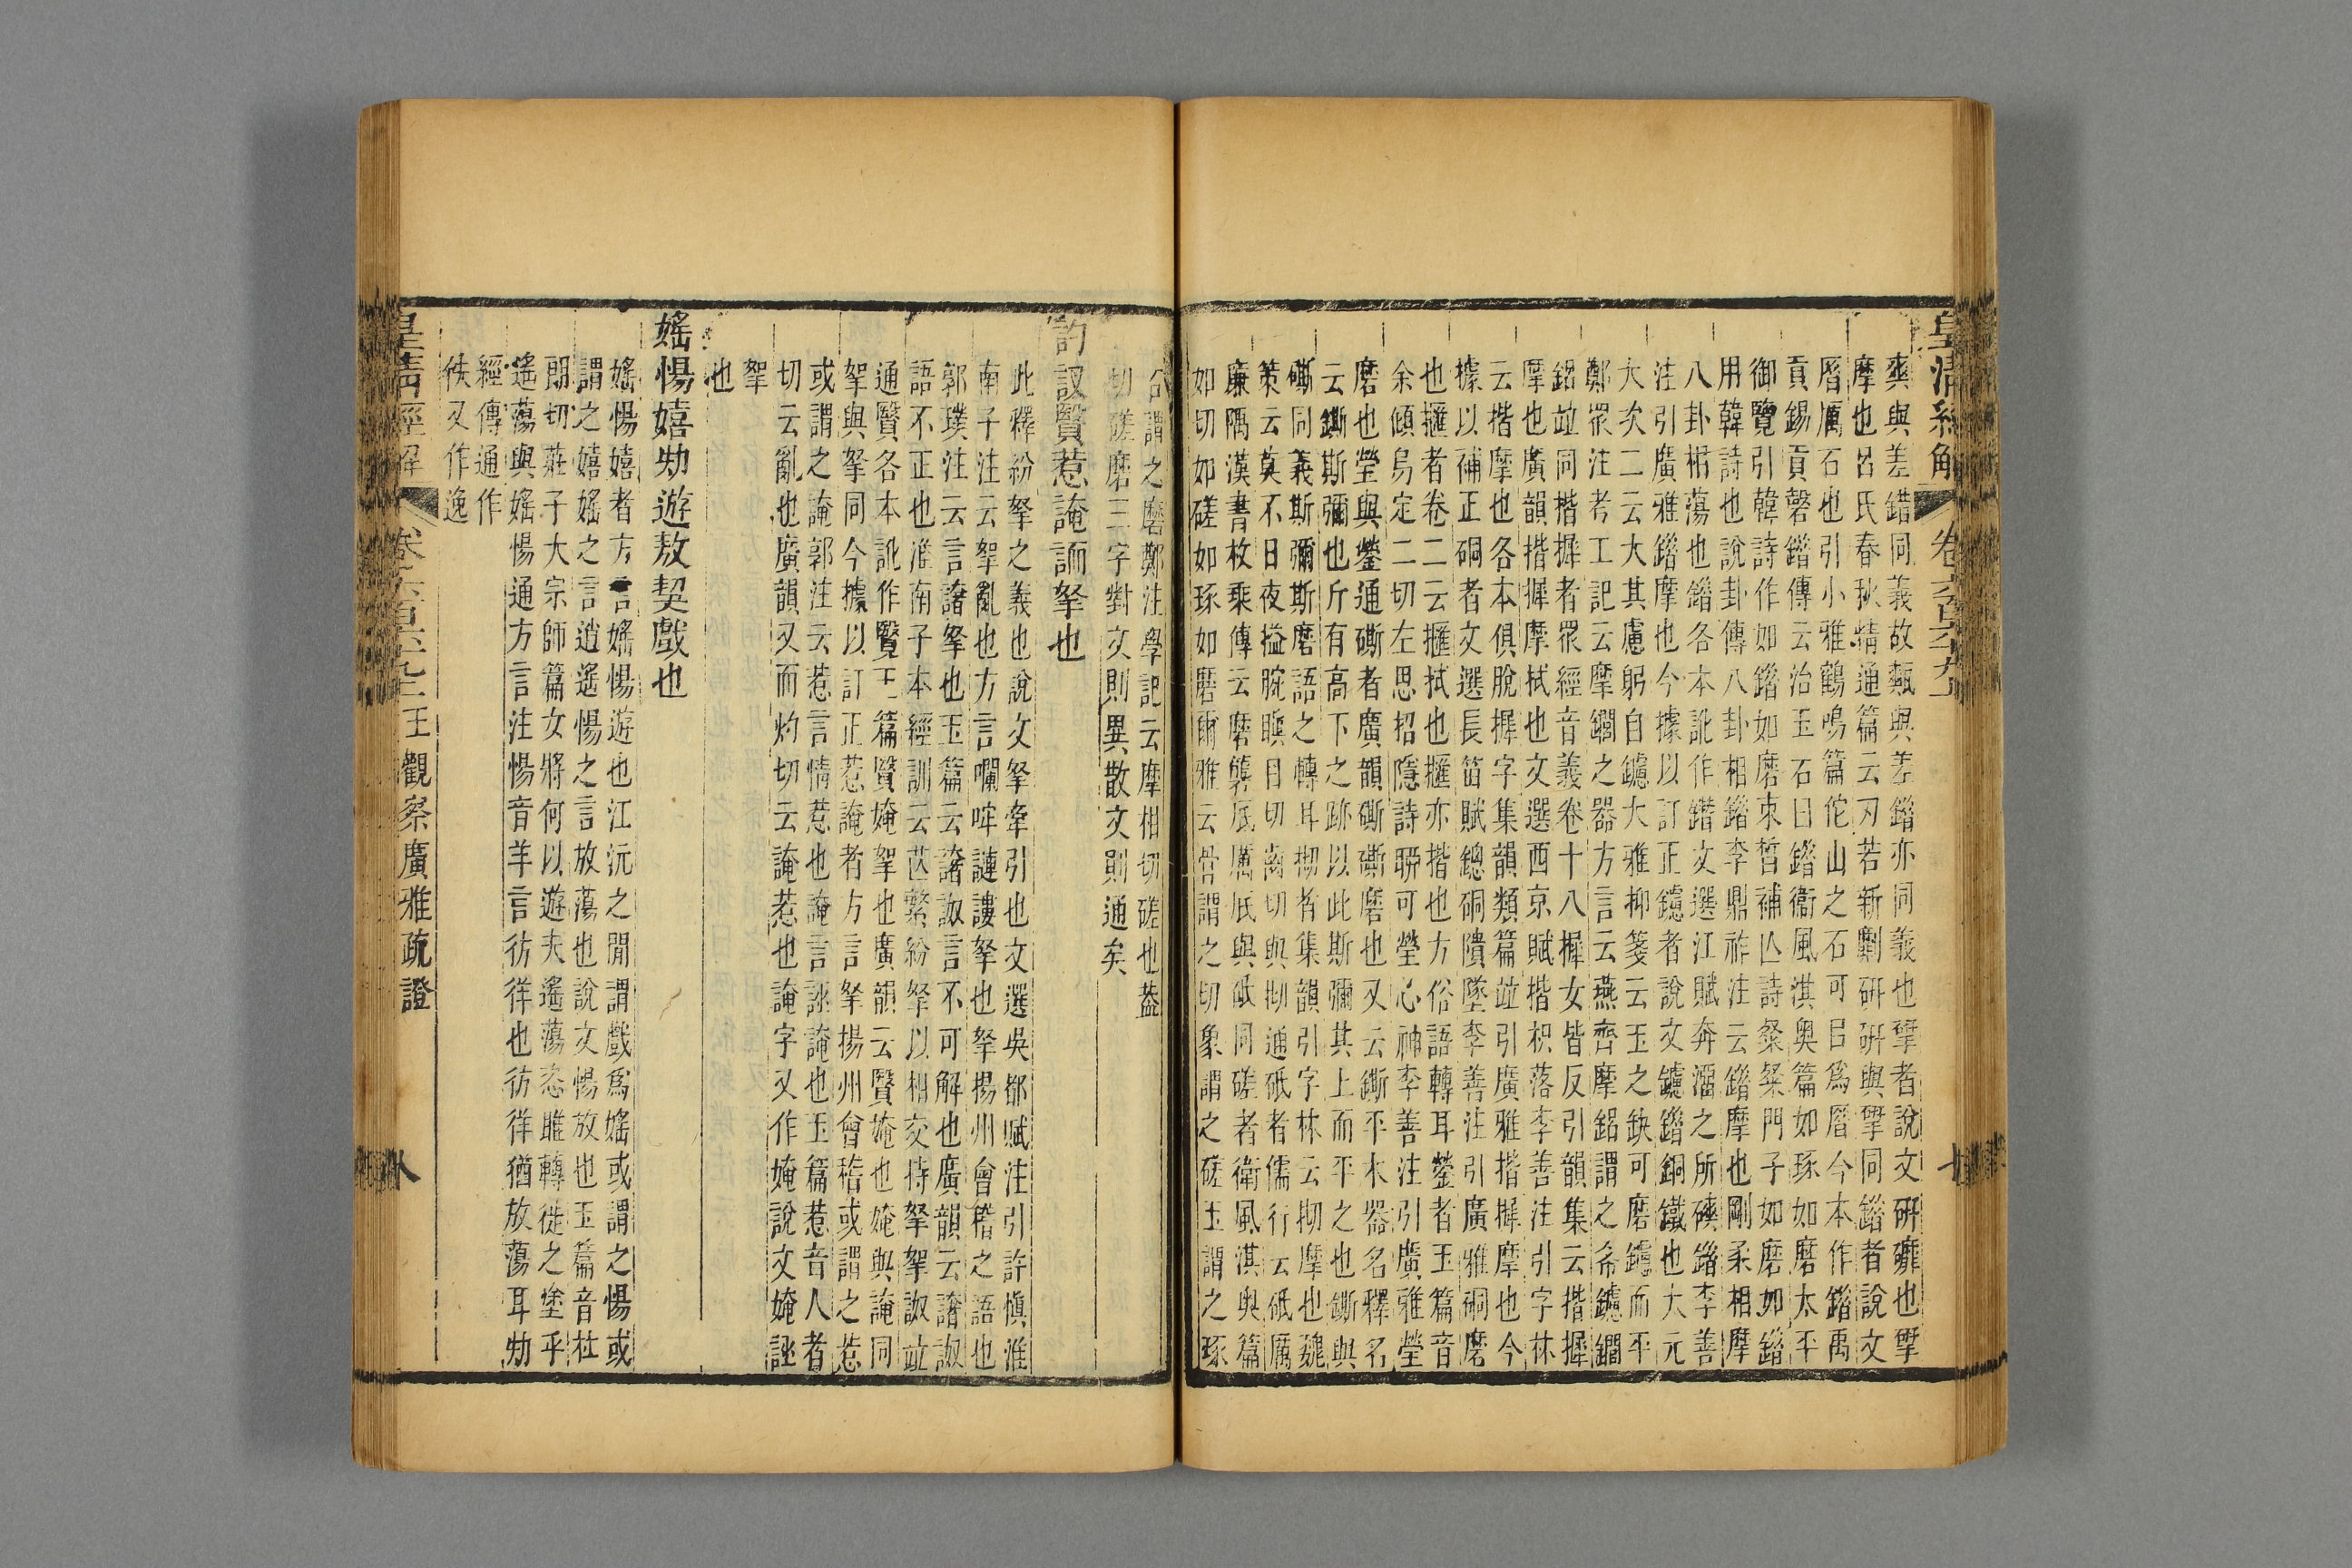 皇清經解
卷六百六十九
十
爽與差錯同義故甐與差錯亦同義也揅者說文研䃺也揅
摩也呂氏春秋精通篇云刃若新劘研硏與揅同錯者說文
厝厲石也引小雅鶴鳴篇佗山之石可㠯爲厝今本作錯禹
貢錫貢磬錯傳云治玉石曰錯衞風淇奧篇如琢如磨太平
御覽引韓詩作如錯如磨束晳補亾詩粲粲門子如磨如錯
用韓詩也說卦傳八卦相錯李鼎祚注云錯摩也剛柔相摩
八卦相蕩也錯各本訛作鐟文選江賦奔溜之所磢錯李善
注引廣雅錯摩也今據以訂正鑢者說文鑢錯銅鐵也大元
大次二云大其慮躬自鑢大雅抑箋云玉之缺可磨鑢而平
鄭衆注考工記云摩鐧之器方言云燕齊摩鋁謂之希鑢鐧
鋁竝同揩摡者衆經音義卷十八摡女皆反引韻集云揩摡
摩也廣韻揩摡摩拭也文選西京賦揩枳落李善注引字林
云揩摩也各本俱脫摡字集韻類篇竝引廣雅揩摡摩也今
據以補正硐者文選長笛賦鏓硐隤墜李善注引廣雅硐磨
也摡者卷二云摡拭也摡亦揩也方俗語轉耳鎣者玉篇音
余傾烏定二切左思招隱詩聊可瑩心神李善注引廣雅瑩
磨也瑩與鎣通磃者廣韻磃磃磨也又云鐁平木器名釋名
云鐁斯彌也斤有高下之跡以此斯彌其上而平之也鐁與
磃同義斯彌斯磨語之轉耳㧘者集韻引字林云㧘摩也魏
策云莫不日夜搤腕瞋目切齒切與㧘通砥者儒行云砥厲
廉隅漢書枚乘傳云磨礱厎厲厎與砥同磋者衞風淇奧篇
如切如磋如琢如磨爾雅云骨謂之切象謂之磋玉謂之琢
石謂之磨鄭注學記云摩相切磋也葢
切磋磨三字對文則異散文則通矣
詉賢惹䛳誧拏也
此釋紛拏之義也說文拏牽引也文選吳都賦注引許愼淮
南子注云拏亂也方言㘓哰謰謱拏也拏揚州會稽之語也
郭璞注云言譇拏也玉篇云譇詉言不可解也廣韻云譇詉
語不正也淮南子本經訓云芒繁紛挐以相交持拏挐詉竝
通賢各本訛作覽玉篇賢婩挐也廣韻云賢婩也婩與䛳同
挐與拏同今據以訂正惹䛳者方言拏揚州會稽或謂之惹
或謂之䛳郭注云惹言情惹也䛳言誣䛳也玉篇惹音人者
切云亂也廣韻又而灼切云䛳惹也䛳字又作婩說文婩誣
挐
也
媱愓嬉劮遊敖契戲也
媱愓嬉者方言媱愓遊也江沅之閒謂戲爲媱或謂之愓或
謂之嬉媱之言逍遙愓之言放蕩也說文愓放也玉篇音杜
朗切莊子大宗師篇女將何以遊夫遙蕩恣睢轉徙之塗乎
遙蕩與媱愓通方言注愓音羊言彷徉也彷徉猶放蕩耳劮
經傳通作
佚又作逸
皇清經解
卷六百六十九
王觀察廣雅疏證